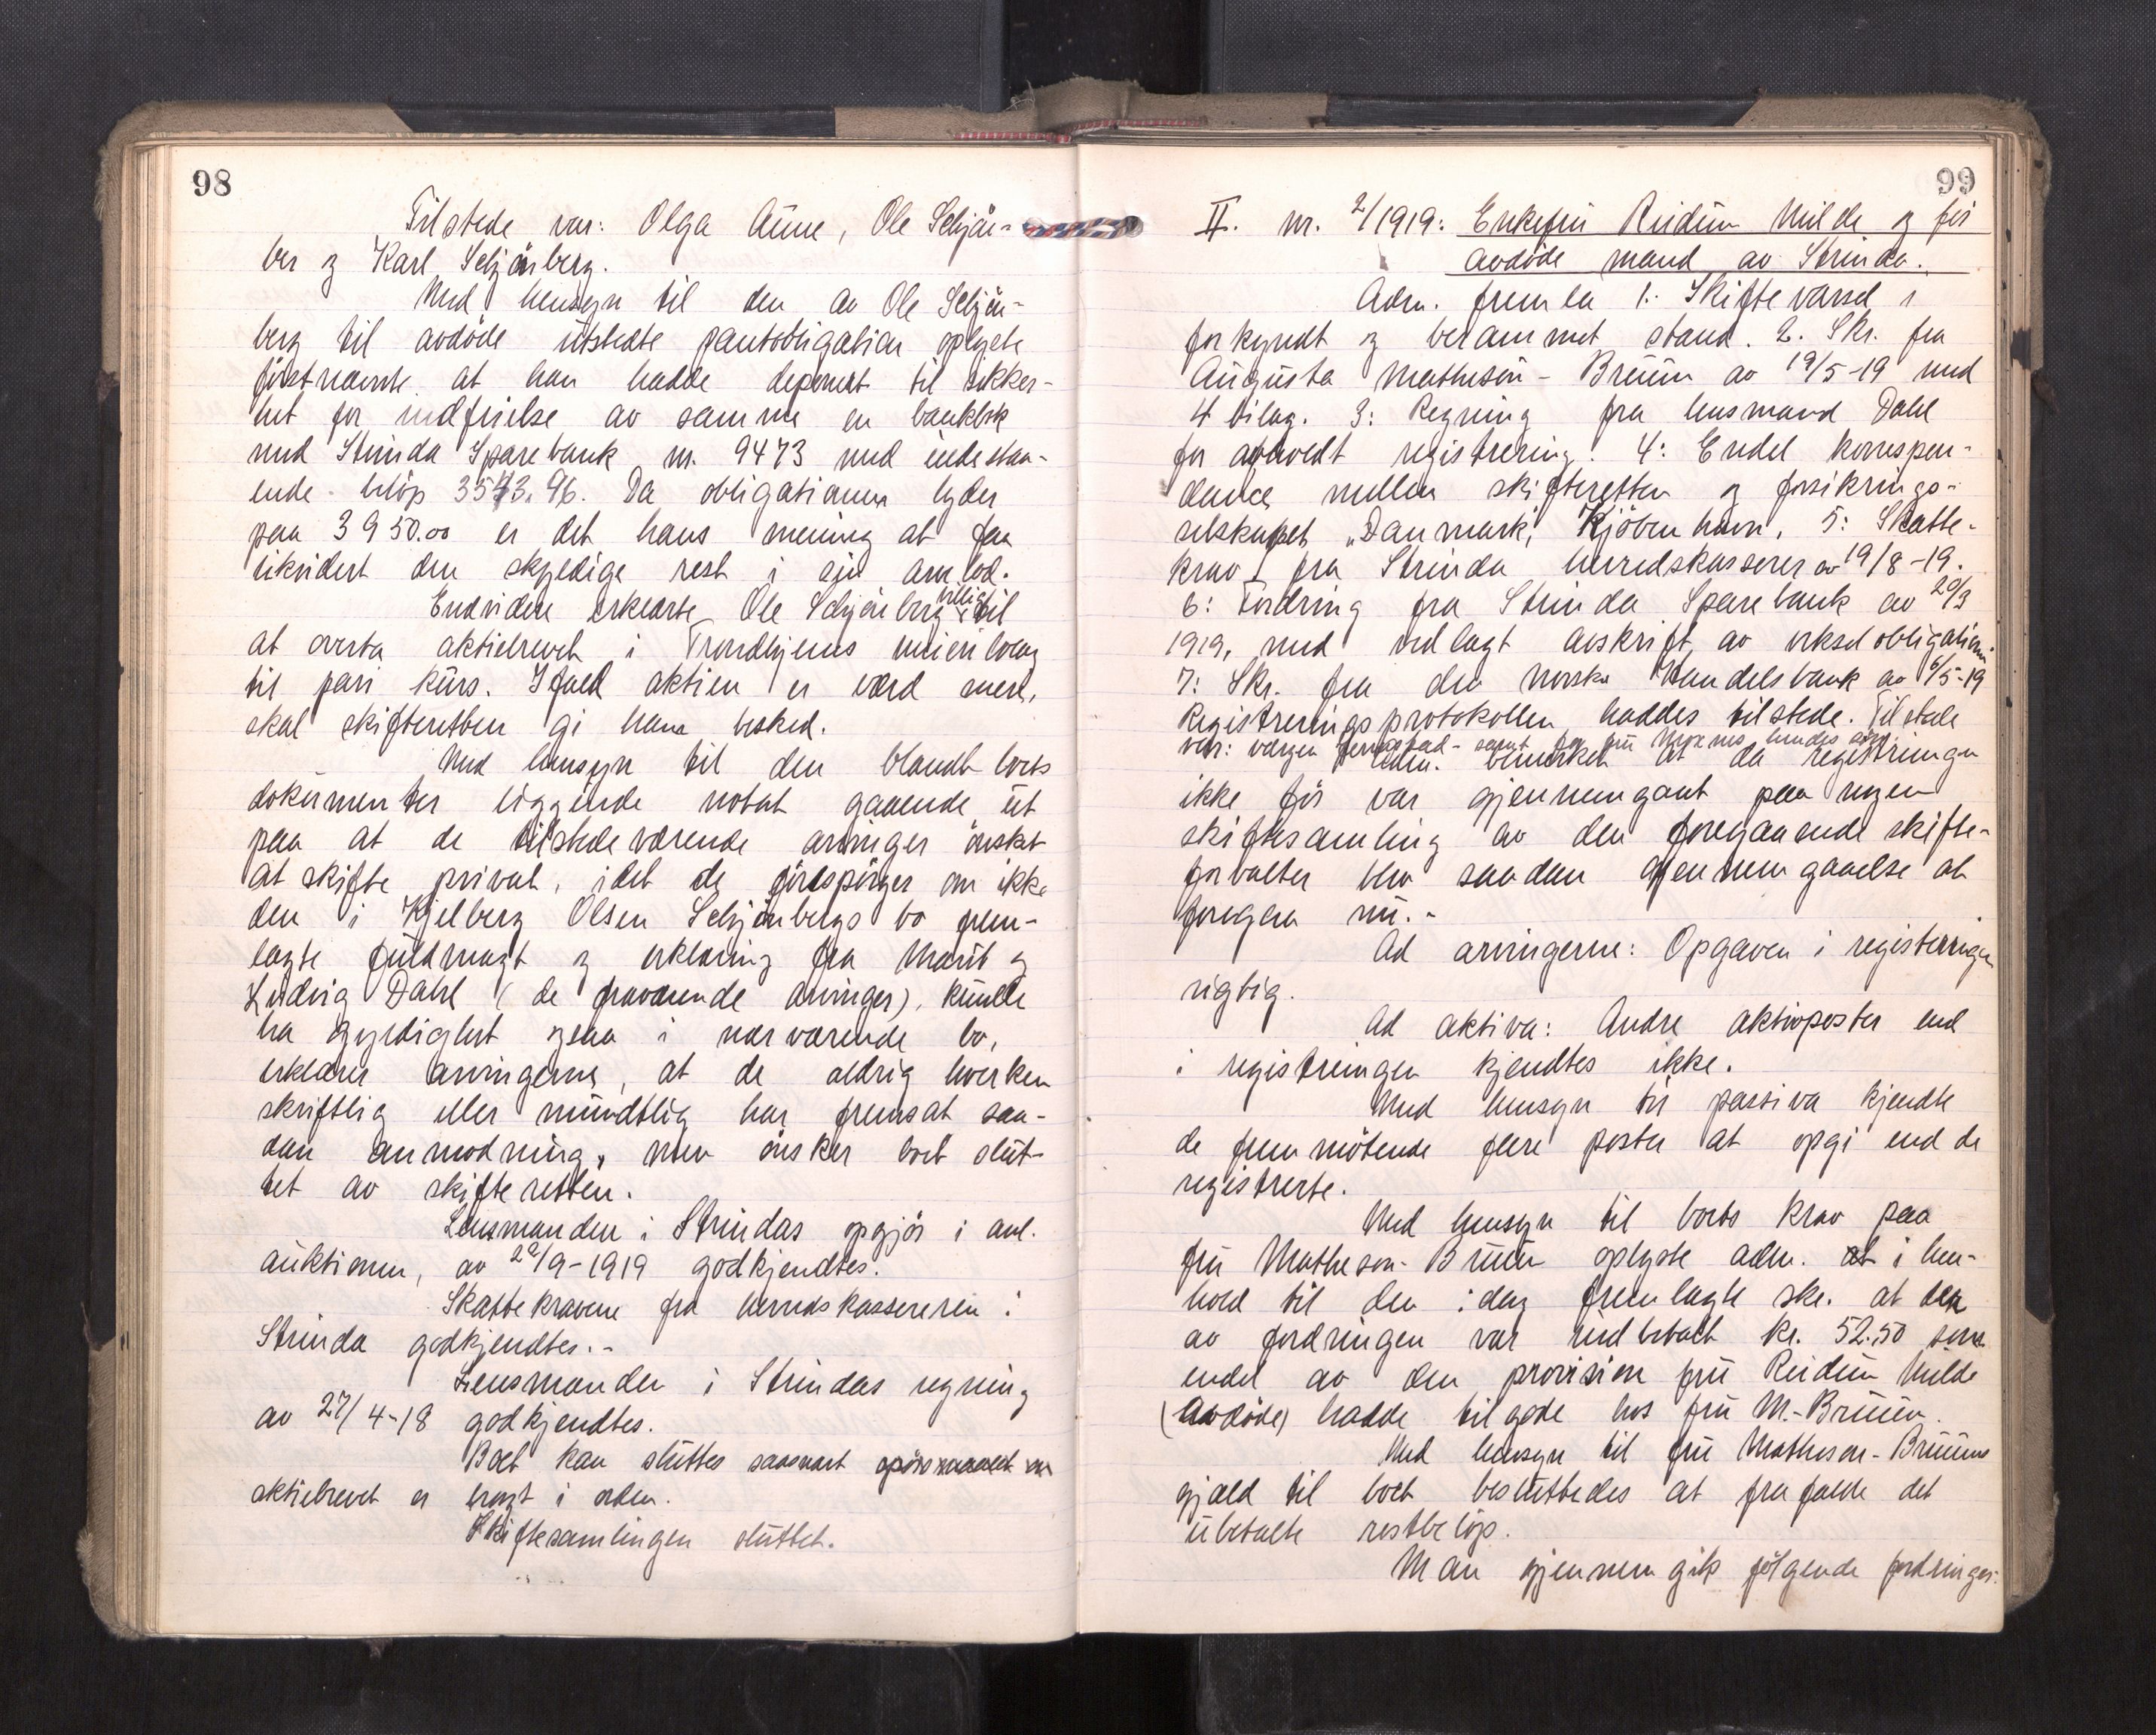 98
Tilstede var: Olga Aune, Ole Schjön-
ber og Karl Schjönberg.
Med hensyn til den av Ole Schjön-
berg til avdöde utstedte pantobligation oplyste
förstnævnte at han hadde deponert til sikker-
het for indfrielse av samme en bankbok
med Strinda Sparebank nr. 9473 med indestaa-
ende belöp 3543.96. Da obligationen lyder
paa 3950.00 er det hans mening at faa
likvidert den skyldige rest i sin arvelod.
Endvidere erklærte Ole Schjönberg sig villig til
at overta aktiebrevet i Trondhjems meieribolag
til pari kurs. Ifald aktien er værd mere,
skal skifteretten gi ham besked.
Med hensyn til den blandt boets
dokumenter liggende notat gaaende ut
paa at de tilstedeværende arvinger önsket
at skifte privat, idet de forespörger om ikke
den i Kjelberg Olsen Schjönbergs bo frem-
lagte fuldmagt og erklæring fra Marit og
Ludvig Dahl (de fraværende arvinger), kunde
ha gyldighet ogsaa i nærværende bo,
erklærer arvingerne, at de aldrig hverken
skriftlig eller mundtlig har fremsat saa-
dan anmodning, men önsker boet slut-
tet av skifteretten.
Lensmanden i Strindas opgjör i anl.
auktionen, av 29/9-1919 godkjendtes.
Skattekravene fra herredskassereren i
Strinda godkjendtes.-
Lensmanden i Strindas regning
av 27/4-18 godkjendtes.
Boet kan sluttes saasnart spörsmaalet om
aktiebrevet er bragt i orden.
Skiftesamlingen sluttet.
99
II. nr. 2/1919: Enkefru Reidun Milde ogför
avdöde mand av Strinda.
Adm. fremla 1: Skiftevarsel i
forkyndt og berammet stand. 2. Skr. fra
Augusta Matheson-Bruun av 19/5-19 med
4 bilag. 3: Regning fra lensmand Dahl
for avholdt registrering. 4: Endel korrespon-
dance mellem skifteretten og forsikrings-
selskapet "Danmark", Kjöbenhavn. 5: Skatte-
krav fra Strinda herredskasserer av 19/8-19.
6: Fordring fra Strinda Sparebank av 20/3
1919, med vedlagt avskrift av vekselobligation
7: Skr. fra den norske Handelsbank av 6/5-19
Registreringsprotokollen haddes tilstede. Tilstede
var: værgen samt for fru hendes
Adm. bemerket at da registringen
ikke för var gjennemgaat paa nogen
skiftesamling av den foregaaende skifte-
forvalter blev saadan gjennemgaaelse at
foregaa nu.-
Ad arvingerne: Opgaven i registeringen
rigtig.
Ad aktiva: Andre aktivposter end
i registreringen kjendtes ikke.
Med hensyn til passiva kjendte
de fremmötende flere poster at opgi end de
registrerte.
Med hensyn til boets krav paa
fru Matheson-Bruun oplyste adm. at i hen-
hold til den idag fremlagte skr. at der
av fordringen var indbetalt kr. 52.50 som
endel av den provision fru Reidun Milde
(avdöde) hadde tilgode hos fru M.-Bruun.
Med hensyn til fru Matheson-Bruuns
gjæld til boet besluttedes at frafalde det
ubetalte restbelöp.
Man gjennemgik fölgende fordringer: